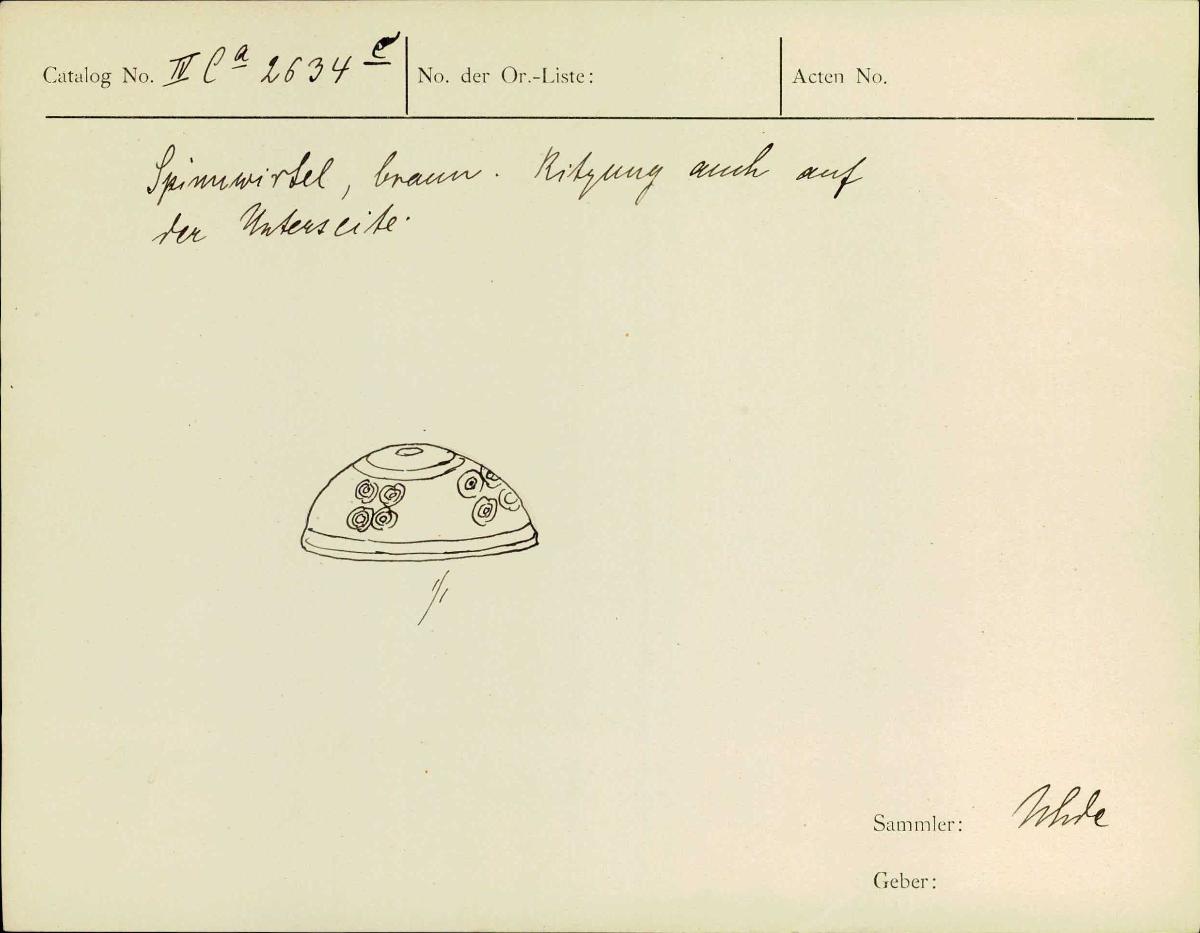 Catalog No. IV Ca 2634 e
No. der Or.-Liste:
Acten No.
Spinnwirtel, braun. Ritzung auch auf
der Unterseite.
1/1
Sammler: Uhde
Geber: